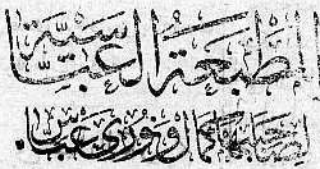 المطبعة العباسية
لصاحبها كمال ونوري عباس